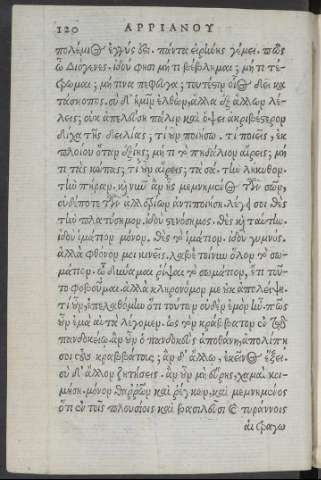 120 ΑΡΡΙΑΝΟΥ
πόλεμος ἐγγύς ὅδε. πάντα εἰρήνης γέμει. πῶς
ὦ Διόγενες. ἰδού φησι μή τι βέβλημαι; μή τι τέ-
τρωμαι; μή τινα πέφευγα; τουτέστιν οἷος δεῖ κα-
τάσκοπος. σὺ δ' ἡμῖν ἐλθὼν, ἄλλα ἐξ ἄλλων λέ-
γεις; οὐκ ἀπελεύσῃ πάλιν καὶ ὄψει ἀκριβέστερον
δίχα τῆς δειλίας; τί οὖν ποιήσω. τί ποιεῖς, ἐκ
πλοίου ὅταν ἐξίῃς; μή τι τὸ πηδάλιον αἴρεις; μή
τι τὰς κώπας; τί οὖν αἴρεις; τὰ σά. τὴν λήκυθον.
τὴν πήραν. καὶ νῦν ἂν ᾖς μεμνημένος τῶν σῶν,
οὐδέποτε τῶν ἀλλοτρίων ἀντιποιήσῃ. λέγει σοι θὲς
τὴν πλατύσημον. ἰδοὺ στενόσημος. θὲς καὶ ταύτην.
ἰδοὺ ἱμάτιον μόνον. θὲς τὸ ἱμάτιον. ἰδοὺ γυμνός.
ἀλλὰ φθόνον μοι κινεῖς. λάβε τοίνυν ὅλον τὸ σω-
μάτιον. ᾧ δύναμαι ῥίψαι τὸ σωμάτιον, ἔτι τού-
το φοβοῦμαι. ἀλλὰ κληρονόμον με οὐκ ἀπολέψει.
τί οὖν, ἐπελαθόμην ὅτι τούτων οὐδὲν ἐμὸν ἦν. πῶς
οὖν ἐμὰ αὐτὰ λέγομεν. ὡς τὸν κράββατον ἐν τῷ
πανδοκείῳ. ἂν οὖν ὁ πανδοκεὺς ἀποθανὼν, ἀπολίπῃ
σοι τοὺς κραββάτους; ἂν δ' ἄλλῳ, ἐκεῖνος ἕξει.
σὺ δ' ἄλλον ζητήσεις. ἂν οὖν μὴ εὕρῃς, χαμαὶ κοι-
μήσῃ. μόνον θαρρῶν καὶ ῥέγκων, καὶ μεμνημένος
ὅτι ἐν τοῖς πλουσίοις καὶ βασιλεῦσι καὶ τυράννοις
αἱ τραγῳ